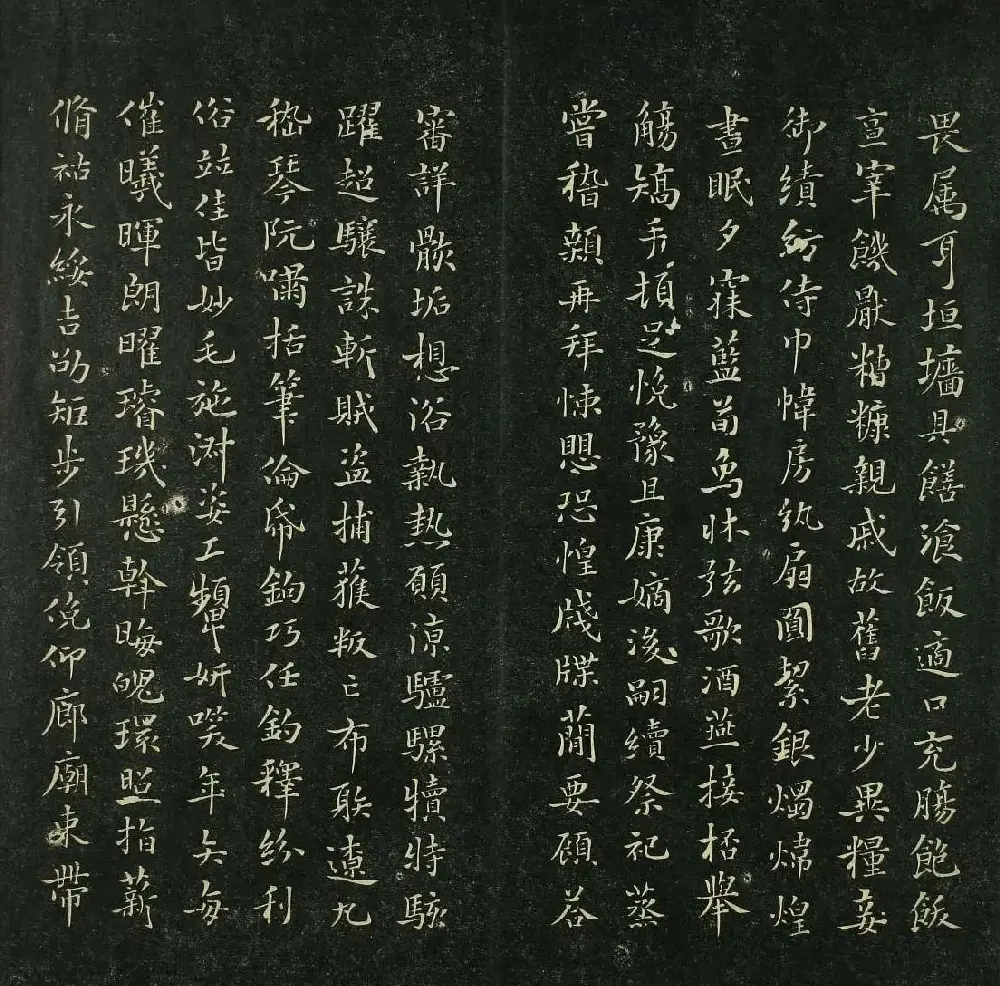 畏属耳垣墻具饍飡飯適口充腸飽飫
亯宰饑厭糟糠親戚故舊老少異糧妾
御績紡侍巾幃房紈扇圓絜銀燭煒煌
晝眠夕寐藍荀象牀弦歌酒燕接杯舉
觴矯手頓足悅豫且康嫡後嗣續祭祀蒸
嘗稽顙再拜悚懼恐惶牋牒蕳要顧荅
審詳骸垢想浴執熱願涼驢騾犢特駭
躍超驤誅斬賊盜捕獲叛亡布射遼丸
嵇琴阮嘯恬筆倫帋鈞巧任釣釋紛利
俗竝佳皆妙毛施淑姿工顰妍笑年矢每
催曦暉朗曜璿璣懸斡晦魄環照指薪
脩祜永綏吉劭矩步引領俛仰廊廟束帶